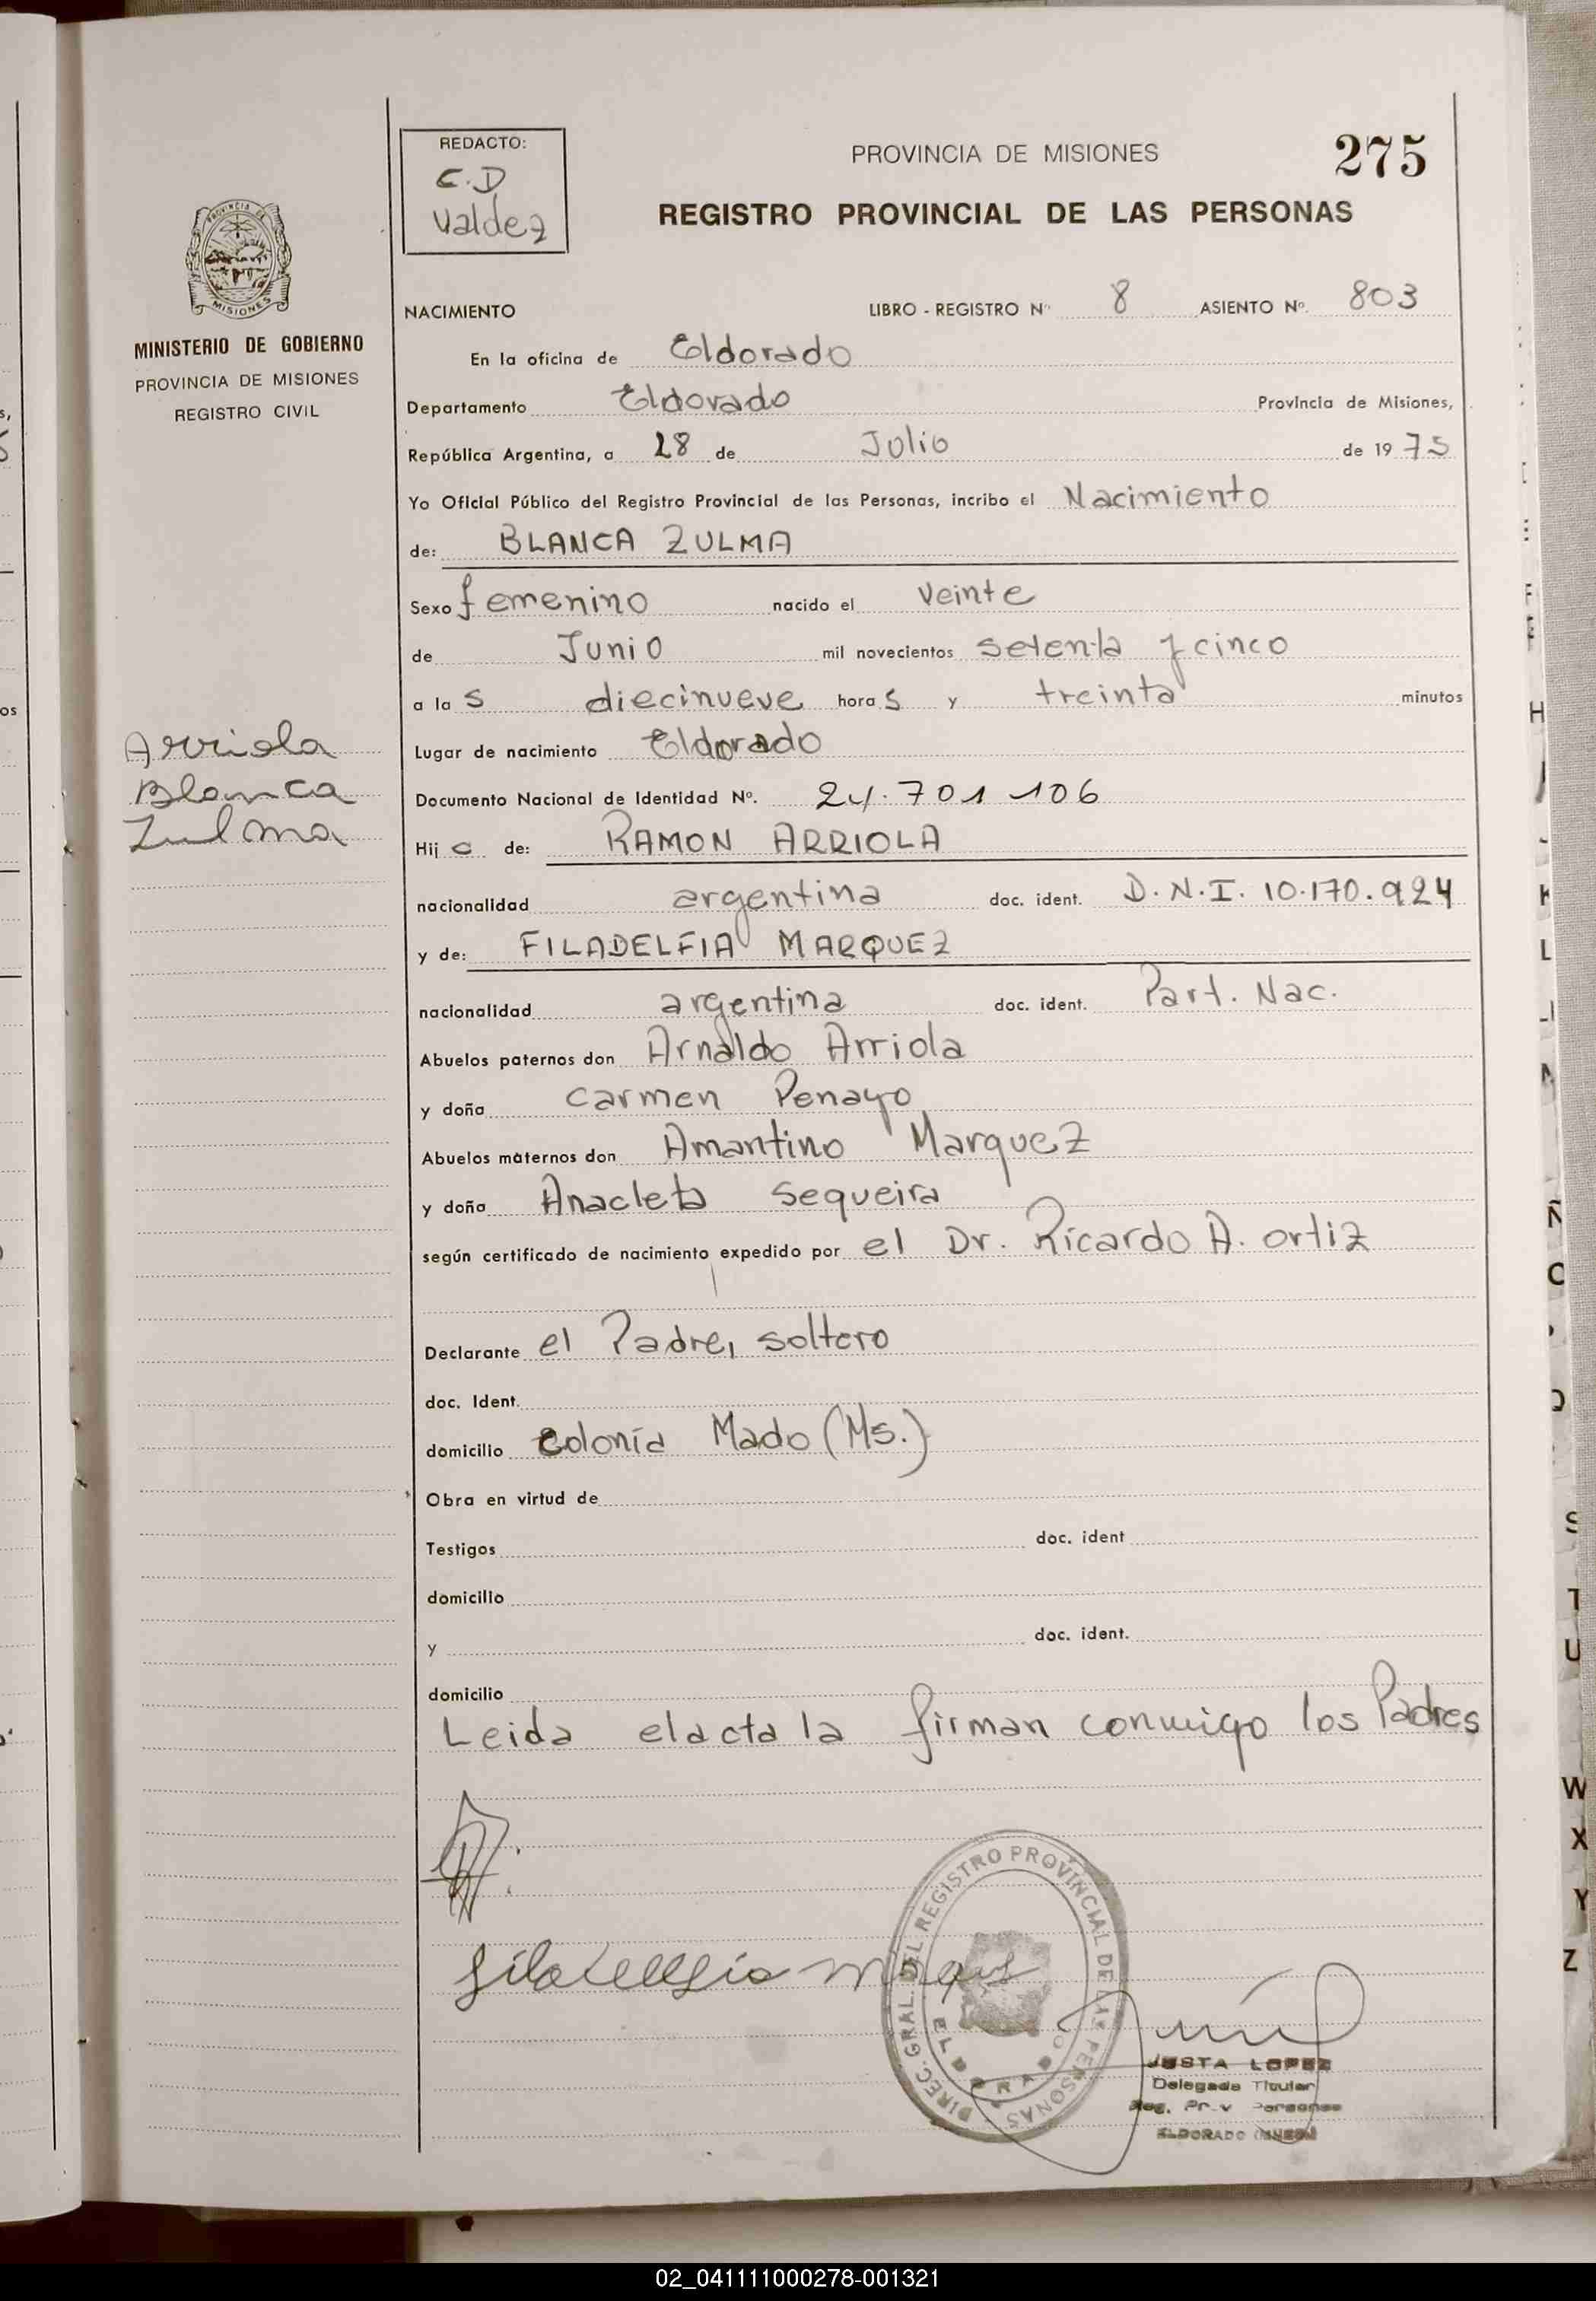 REDACTO:
C.D
Valdez
PROVINCIA DE MISIONES
275
REGISTRO PROVINCIAL DE LAS PERSONAS
MISIONES
MINISTERIO DE GOBIERNO
PROVINCIA DE MISIONES
REGISTRO CIVIL
NACIMIENTO LIBRO - REGISTRO Nº 8 ASIENTO Nº. 803
En la oficina de Eldorado
Departamento Eldorado Provincia de Misiones,
República Argentina, a 28 de Julio de 1975
Yo Oficial Público del Registro Provincial de las Personas, incribo el Nacimiento
de: BLANCA ZULMA
Sexo femenino nacido el veinte
de Junio mil novecientos setenta y cinco
a las diecinueve horas y treinta minutos
Arriola
Blanca
Zulma
Lugar de nacimiento Eldorado
Documento Nacional de Identidad Nº. 24.701 106
Hija de: RAMON ARRIOLA
nacionalidad argentina doc. ident. D.N.I. 10.170.924
y de: FILADELFIA MARQUEZ
nacionalidad argentina doc. ident. Part. Nac.
Abuelos paternos don Arnaldo Arriola
y doña Carmen Penayo
Abuelos maternos don Amantino Marquez
y doña Anacleta Sequeira
según certificado de nacimiento expedido por el Dr. Ricardo A. Ortiz
Declarante el Padre, soltero
doc. Ident.
domicilio Colonia Mado (Ms.)
Obra en virtud de
Testigos doc. ident
domicilio
y doc. ident.
domicilio
Leida el acta la firman conmigo los Padres
DIREC. GRAL. DEL REGISTRO PROVINCIAL DE LAS PERSONAS
ELDORADO
JUSTA LOPEZ
Delegada Titular
Reg. Prv Personas
ELDORADO
02_041111000278-001321